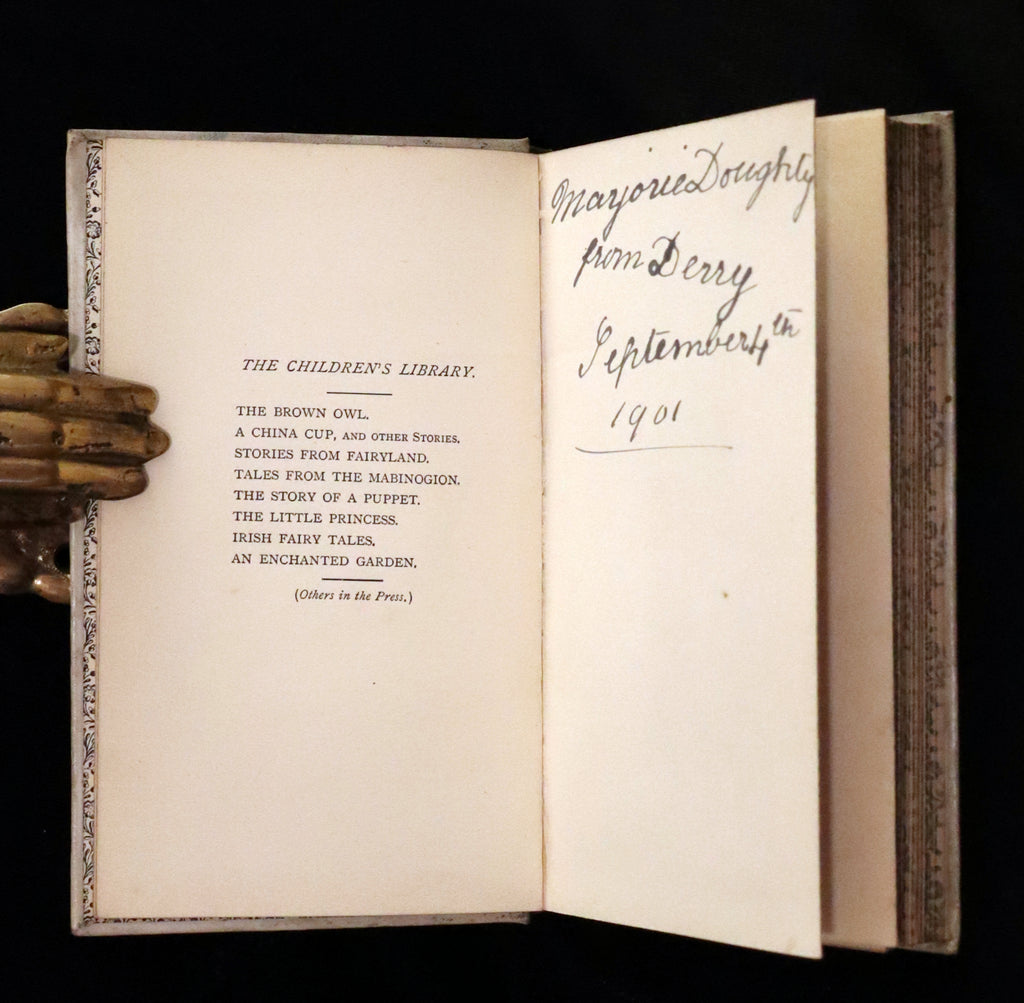 THE CHILDREN'S LIBRARY.
THE BROWN OWL.
A CHINA CUP, AND OTHER STORIES.
STORIES FROM FAIRYLAND.
TALES FROM THE MABINOGION.
THE STORY OF A PUPPET.
THE LITTLE PRINCESS.
IRISH FAIRY TALES.
AN ENCHANTED GARDEN.
(Others in the Press.)
Marjorie Doughty
from Derry
September 4th
1901